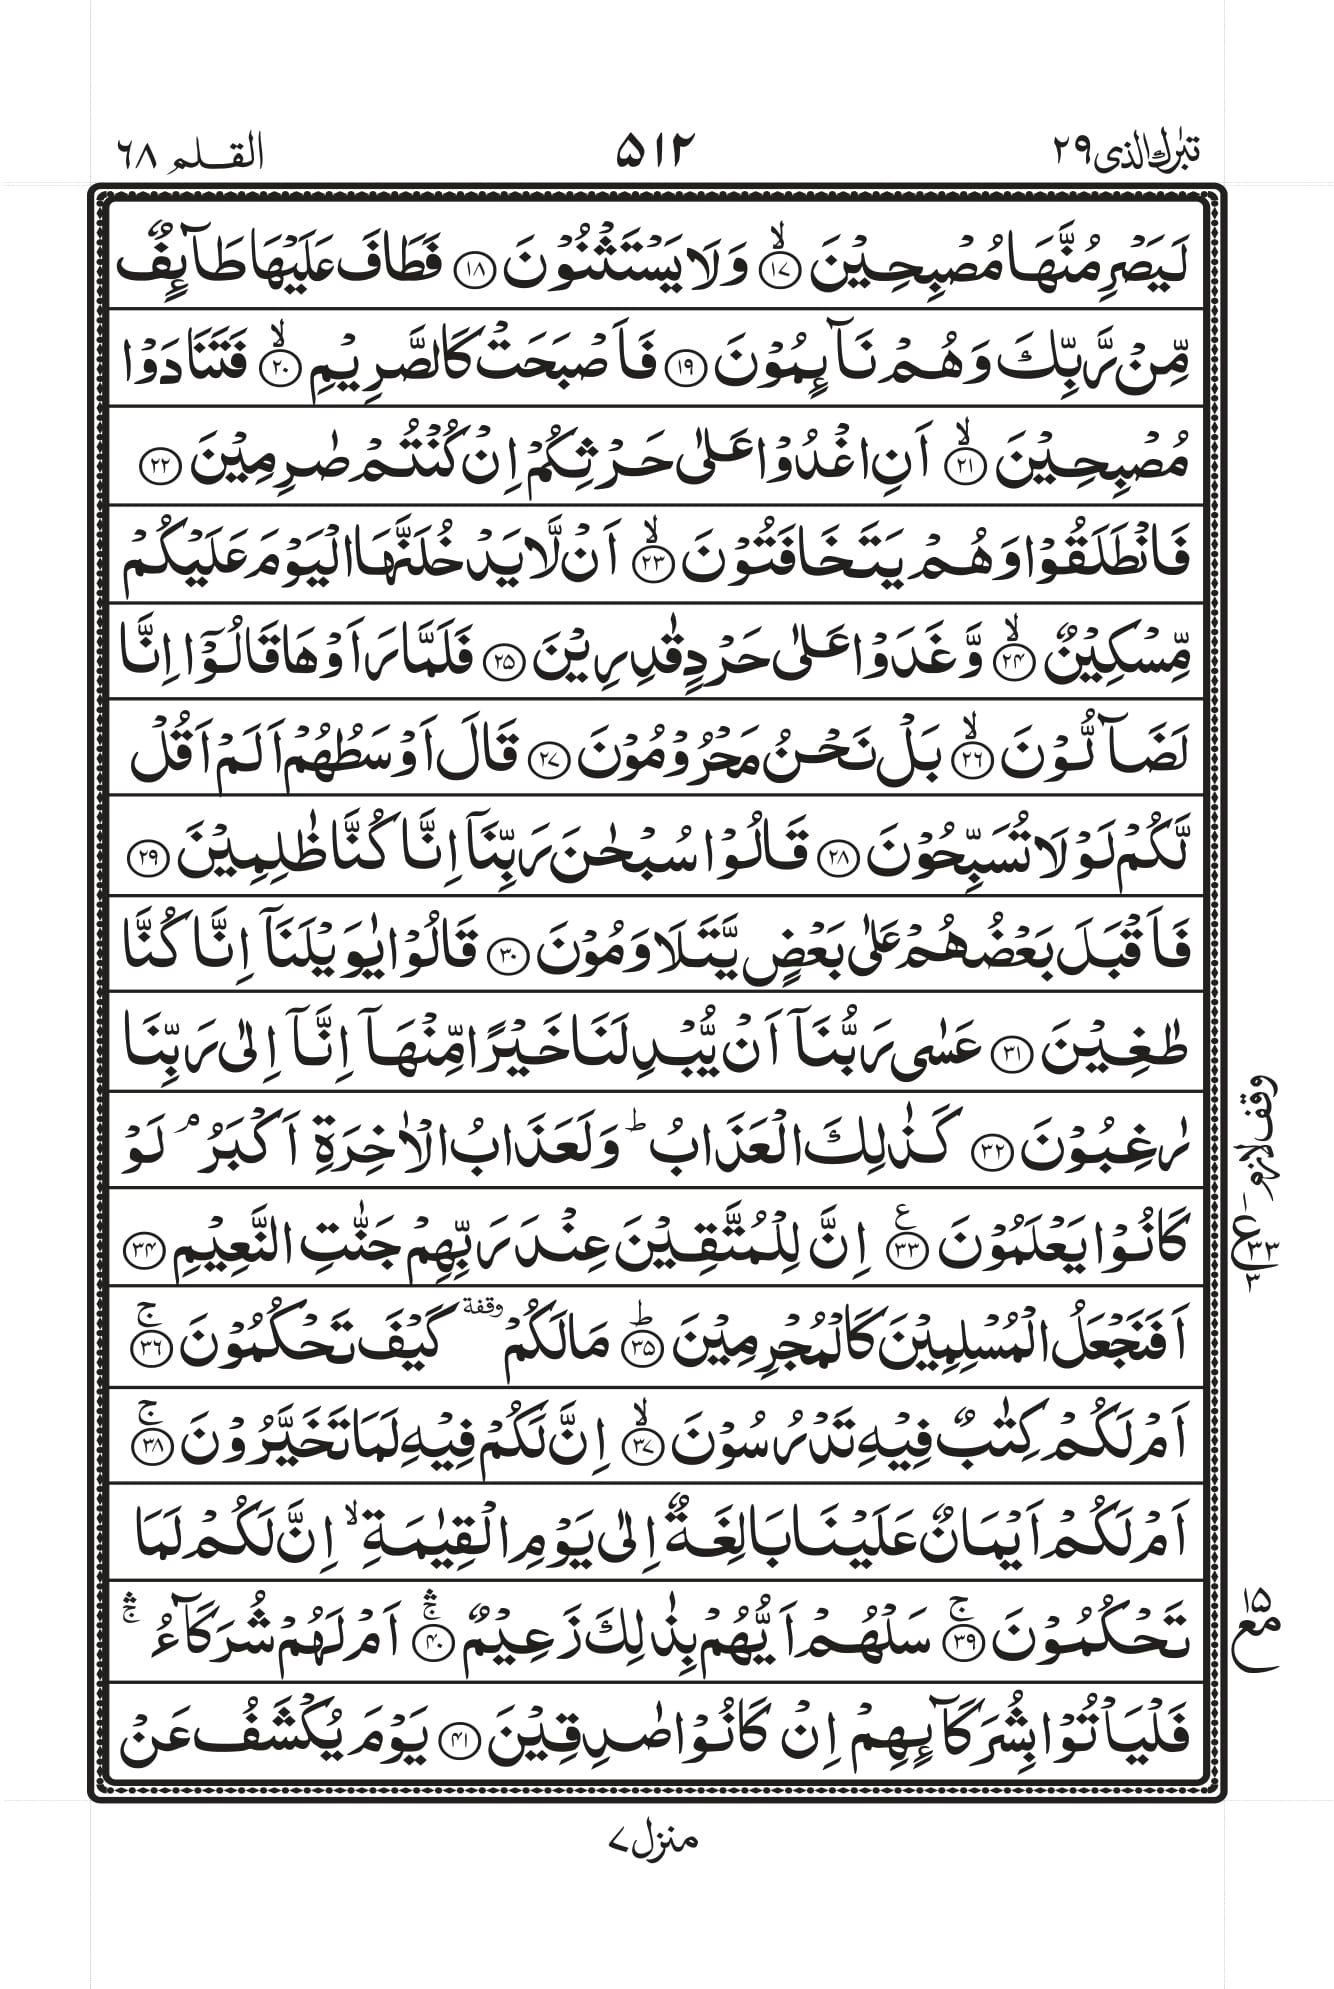 تبٰرك الذی ۲۹
۵۱۲
القلم ۶۸
لَيَصْرِمُنَّهَا مُصْبِحِيْنَ ۙ﴿۱۷﴾ وَلَا يَسْتَثْنُوْنَ ﴿۱۸﴾ فَطَافَ عَلَيْهَا طَآئِفٌ
مِّنْ رَّبِّكَ وَهُمْ نَآئِمُوْنَ ﴿۱۹﴾ فَاَصْبَحَتْ كَالصَّرِيْمِ ۙ﴿۲۰﴾ فَتَنَادَوْا
مُصْبِحِيْنَ ۙ﴿۲۱﴾ اَنِ اغْدُوْا عَلٰى حَرْثِكُمْ اِنْ كُنْتُمْ صٰرِمِيْنَ ﴿۲۲﴾
فَانْطَلَقُوْا وَهُمْ يَتَخَافَتُوْنَ ۙ﴿۲۳﴾ اَنْ لَّا يَدْخُلَنَّهَا الْيَوْمَ عَلَيْكُمْ
مِّسْكِيْنٌ ۙ﴿۲۴﴾ وَّغَدَوْا عَلٰى حَرْدٍ قٰدِرِيْنَ ﴿۲۵﴾ فَلَمَّا رَاَوْهَا قَالُوْٓا اِنَّا
لَضَآلُّوْنَ ۙ﴿۲۶﴾ بَلْ نَحْنُ مَحْرُوْمُوْنَ ﴿۲۷﴾ قَالَ اَوْسَطُهُمْ اَلَمْ اَقُلْ
لَّكُمْ لَوْلَا تُسَبِّحُوْنَ ﴿۲۸﴾ قَالُوْا سُبْحٰنَ رَبِّنَآ اِنَّا كُنَّا ظٰلِمِيْنَ ﴿۲۹﴾
فَاَقْبَلَ بَعْضُهُمْ عَلٰى بَعْضٍ يَّتَلَاوَمُوْنَ ﴿۳۰﴾ قَالُوْا يٰوَيْلَنَآ اِنَّا كُنَّا
طٰغِيْنَ ﴿۳۱﴾ عَسٰى رَبُّنَآ اَنْ يُّبْدِلَنَا خَيْرًا مِّنْهَآ اِنَّآ اِلٰى رَبِّنَا
رٰغِبُوْنَ ﴿۳۲﴾ كَذٰلِكَ الْعَذَابُ ؕ وَلَعَذَابُ الْاٰخِرَةِ اَكْبَرُ ۘ لَوْ
كَانُوْا يَعْلَمُوْنَ ﴿۳۳﴾ع اِنَّ لِلْمُتَّقِيْنَ عِنْدَ رَبِّهِمْ جَنّٰتِ النَّعِيْمِ ﴿۳۴﴾
اَفَنَجْعَلُ الْمُسْلِمِيْنَ كَالْمُجْرِمِيْنَ ؕ﴿۳۵﴾ مَا لَكُمْ وقفة كَيْفَ تَحْكُمُوْنَ ۚ﴿۳۶﴾
اَمْ لَكُمْ كِتٰبٌ فِيْهِ تَدْرُسُوْنَ ۙ﴿۳۷﴾ اِنَّ لَكُمْ فِيْهِ لَمَا تَخَيَّرُوْنَ ۚ﴿۳۸﴾
اَمْ لَكُمْ اَيْمَانٌ عَلَيْنَا بَالِغَةٌ اِلٰى يَوْمِ الْقِيٰمَةِ ۙ اِنَّ لَكُمْ لَمَا
تَحْكُمُوْنَ ۚ﴿۳۹﴾ سَلْهُمْ اَيُّهُمْ بِذٰلِكَ زَعِيْمٌ ۛۚ﴿۴۰﴾ اَمْ لَهُمْ شُرَكَآءُ ۛۚ
فَلْيَاْتُوْا بِشُرَكَآئِهِمْ اِنْ كَانُوْا صٰدِقِيْنَ ﴿۴۱﴾ يَوْمَ يُكْشَفُ عَنْ
وقف لازم
۱ ع ۳۳ ۳
۱۵ مع
منزل ۷